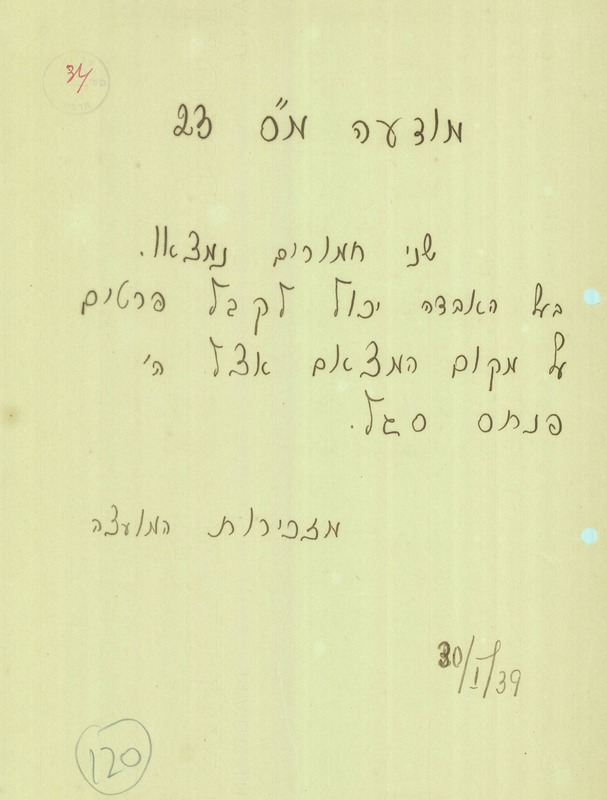 34
מודעה מ"ס 23
שני חמורים נמצאו.
בעל האבדה יכול לקבל פרטים
על מקום המצאם אצל ה'
פנחס סגל.
מזכירות המועצה
30/I/39
120